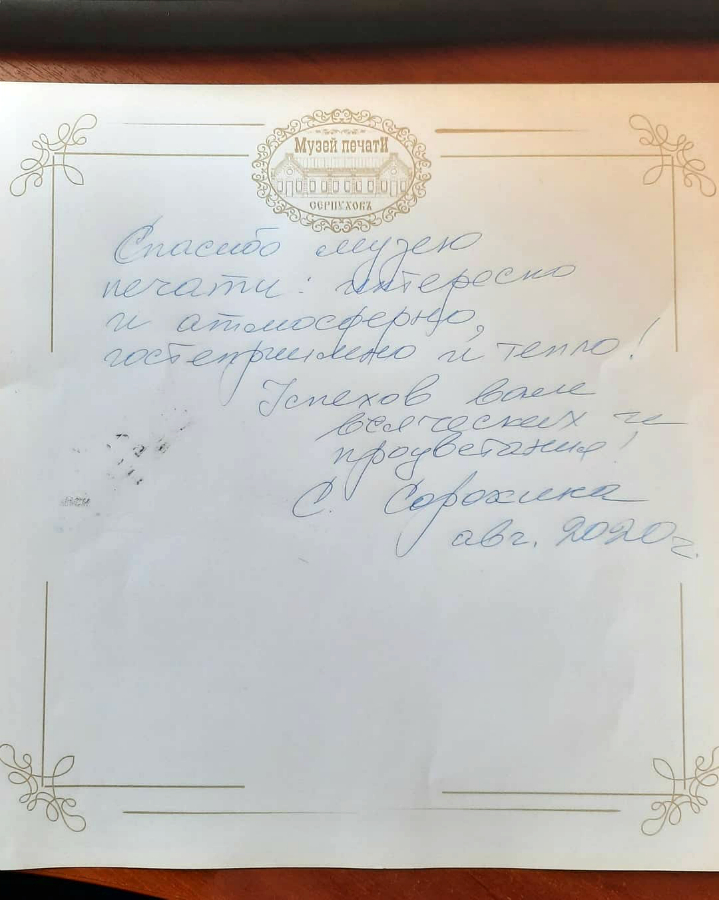 Музей печати
СЕРПУХОВЪ
Спасибо музею
печати: интересно
и атмосферно,
гостеприимно и тепло!
Успехов вам
всяческих и
процветания!
С. Сорокина
авг. 2020 г.